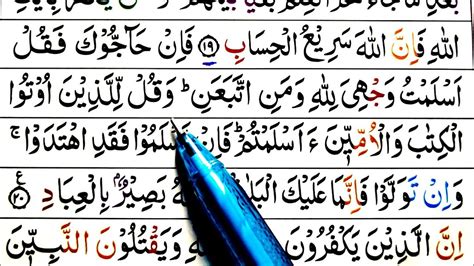 بَعْدِ مَا جَآءَهُمُ الْعِلْمُ بَغْيًۢا بَيْنَهُمْ
اللّٰهِ فَاِنَّ اللّٰهَ سَرِيْعُ الْحِسَابِ ﴿۱۹﴾ فَاِنْ حَآجُّوْكَ فَقُلْ
اَسْلَمْتُ وَجْهِيَ لِلّٰهِ وَمَنِ اتَّبَعَنِ ؕ وَقُلْ لِّلَّذِيْنَ اُوْتُوا
الْكِتٰبَ وَالْاُمِّيّٖنَ ءَاَسْلَمْتُمْ ؕ فَاِنْ اَسْلَمُوْا فَقَدِ اهْتَدَوْا ۚ
وَاِنْ تَوَلَّوْا فَاِنَّمَا عَلَيْكَ بَصِيْرٌۢ بِالْعِبَادِ ﴿۲۰﴾ ع
اِنَّ الَّذِيْنَ يَكْفُرُوْنَ وَيَقْتُلُوْنَ النَّبِيّٖنَ